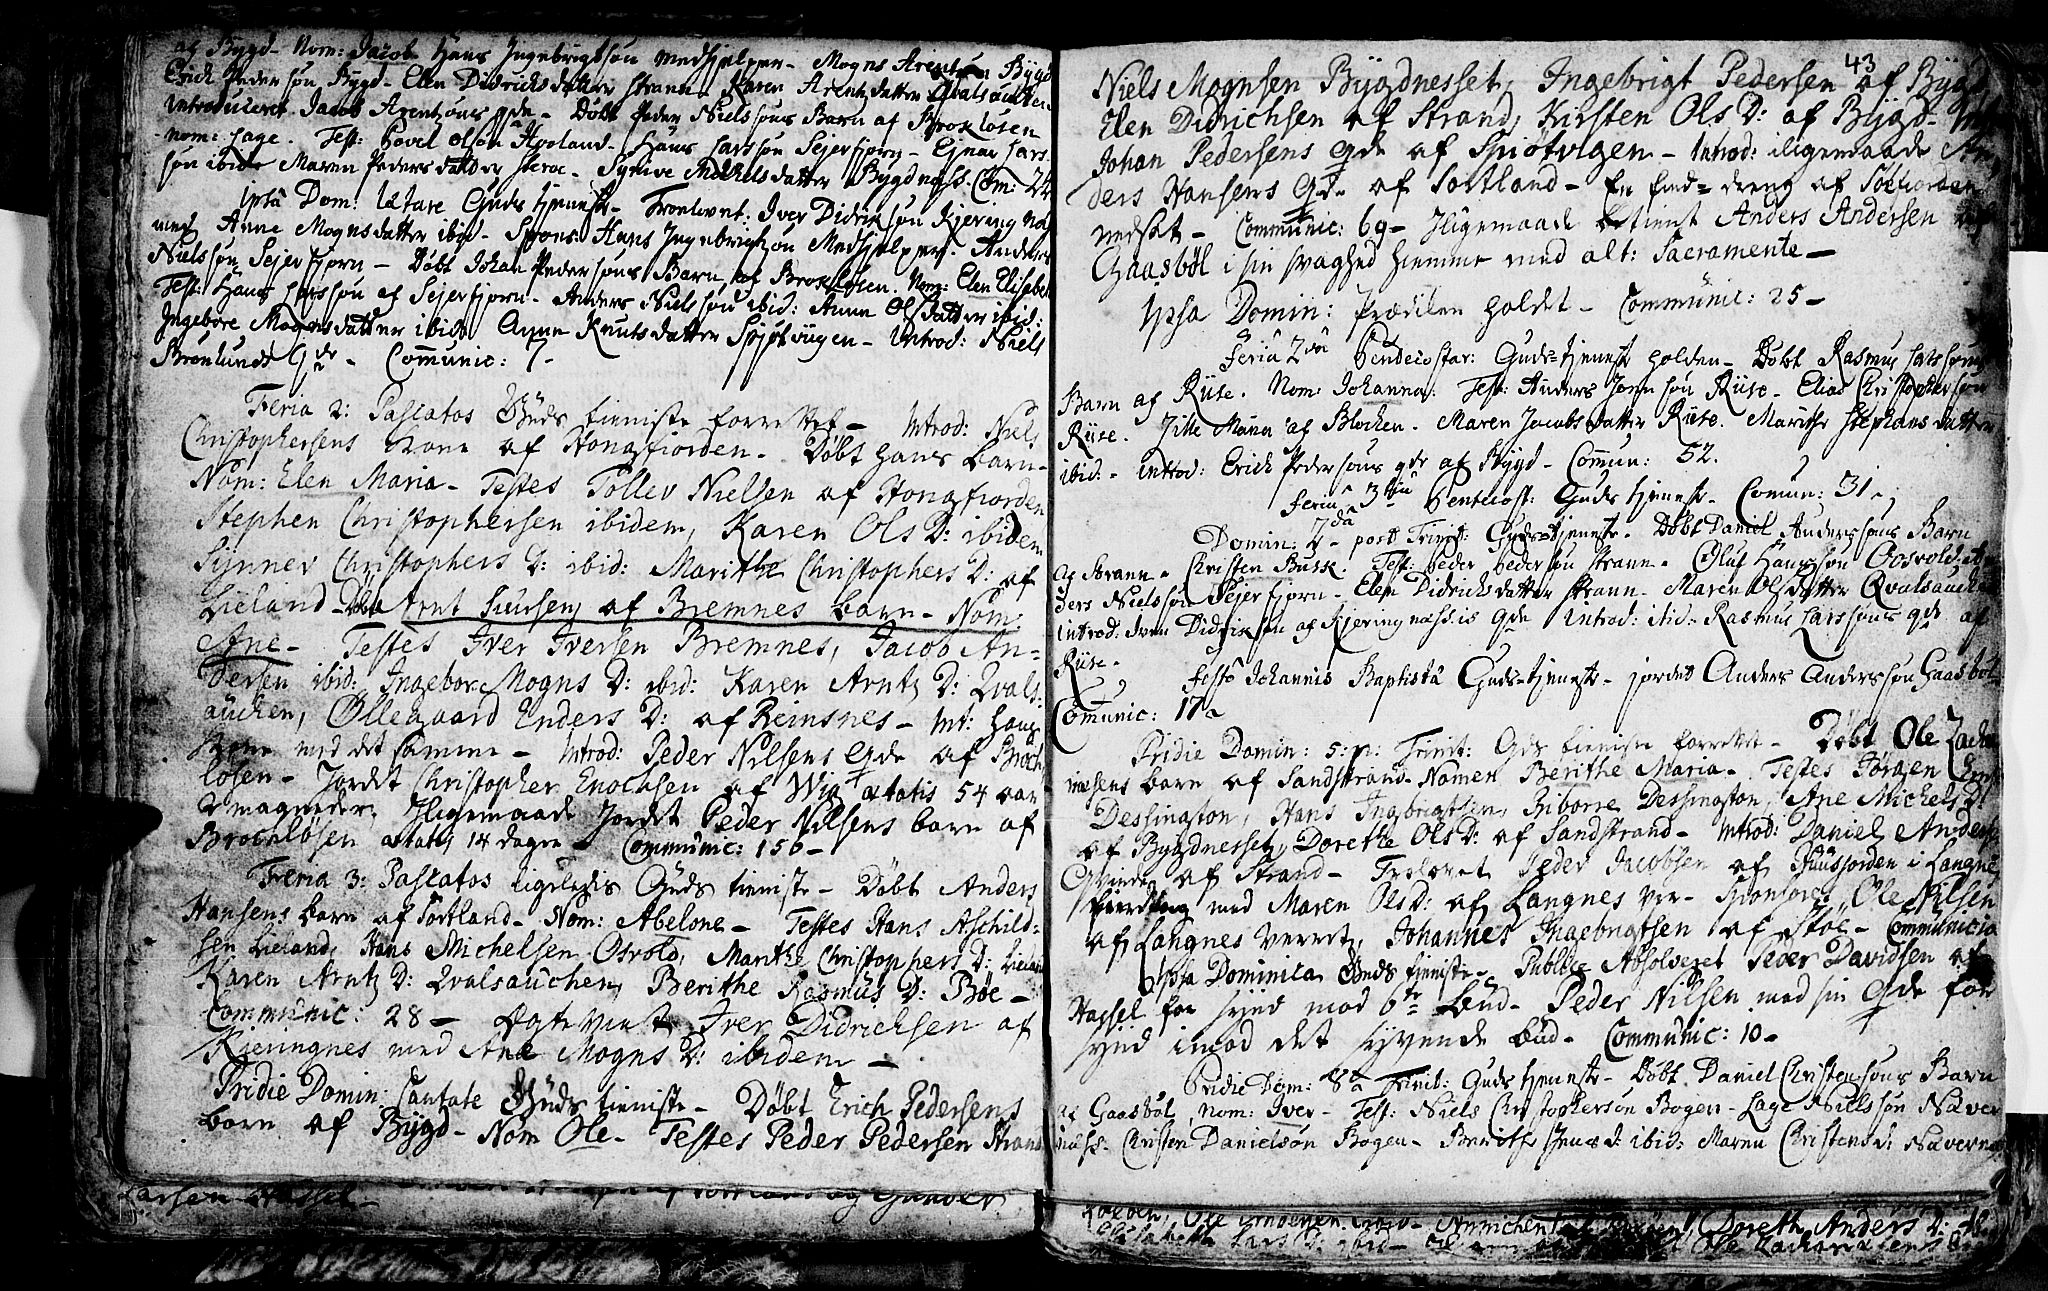 af Bygd - Nom: Jacob Hans Ingebrigtsøn Medhjelper - Mogns Arentsøn Bygd
Erich Pedersøn Bygd - Elen Didrichsdatter Strann - Karen Arentzdatter Qvalsaucken
Introduceret Jacob Arentzøns qde - Døbt Peder Nielsøns Barn af Brokløsen
nom: Lage. Test: Povel Olsøn Haaland - Hans Larssøn Sejerfjorn - Ejnar Lars
søn ibid: Maren Pedersdatter - Synive Michelsdatter Bygdnæss. Com: 24
Ipsa Dom: Lætare Guds tjeneste - Troelovet: Iver Didriksøn Kjeringnæs
med Anne Mognsdatter ibid - Spons: Hans Ingebrigtsøn Medhjelper. Anders
Nielssøn Sejerfjorn - Døbt Johan Pedersøns Barn af Brokløsen. Nom: Elen Elisabeth
Test: Hans Larssøn af Sejerfjorn - Anders Nielsøn ibid: Anne Olsdatter ibid:
Ingebore Mognsdatter ibid: Anne Knutsdatter Spjøtvigen - Introd: Niels
Brønlunds Qde - Communic: 7 -
Feria 2: Pascatos Guds tieniste forrettet - Introd: Niels
Christophersens Kone af Hongfiorden - Døbt hans barn -
Nom: Elen Maria - Testes Tollev Nielsen af Hongfiorden
Stephen Christophersen ibidem, Karen Ols D: ibidem
Synnev Christophers D: ibid: Marithe Christophers D: af
Lieland - Døbt Arnt Siursens af Bremnes barn - Nom:
Ane - Testes Iver Iversen Bremnes, Jacob An-
dersen ibid: Ingebor Mogns D: ibid: Karen Arntz D: Qvals:
aucken, Øllegaard Enders D: af Reinsnes - Int: hans
Kone med det samme - Introd: Peder Nilsens Qde af Broch
løsen - Jordet Christopher Enochsen af Wiq ætatis 54 aar
2 magneder, Iligemaade Jordet Peder Nilsens barn af
Brochløsen ætatis 14 dagen - Communic: 156 -
Feria 3: Pascatos ligeledis Guds tieniste - Døbt Anders
Hansens barn af Sortland - Nom: Abelone - Testes Hans Aschild-
sen Lieland, Hans Michelsen Osvold, Marithe Christophers D: Lieland
Karen Arntz D: Qvalsauchen, Berithe Rasmus D: Bøe -
Communic: 28 - Ægteviet Iver Didrichsen af
Kieringnes med Ane Mogns D: ibidem -
Pridie Domin: Cantate Guds tieniste - Døbt Erich Pedersens
barn af Bygd - Nom Ole - Testes Peder Pedersen Strand
Larsen Hassel -
43
Niels Mognsen Bygdnesset, Ingebrigt Pedersen af Bygd
Elen Didrichsen af Strand, Kirsten Ols D: af Bygd - Int:
Johan Pedersens Qde af Spiøtvigen - Introd: iligemaade An-
ders Hansens Qde af Sortland - En find-dreng af Søefiorden
nedsat - Communic: 69 - Iligemaade betient Anders Andersen af
Gaasbøl i sin svaghed hiemme med alt: Sacramente -
Ipsa Domin: Prædiken holdet - Communic: 25 -
Feria 2da Pendecostar: Guds-tjeneste holden - Døbt Rasmus Larssøns
Barn af Riise. Nom: Johanna: Test: Anders Jonsøn Riise - Elias Christophersøn
Riise. Jille Maria af Blocken. Maren Jacobsdatter Riise. Marithe Stephansdatter
ibid: - Introd: Erich Pedersøns qde af Bygd - Comun: 52.
Feria 3tia Pentecost: Guds tjeneste - Comun: 31 -
Domin: 2da post Trinit: Guds-tjeneste - Døbt Daniel Anderssøns Barn
af Strann - Christen Busk. Test: Peder Pedersøn Strann - Oluf Hanssøn Oosvold: An-
ders Nielssøn Sejerfjorn - Elen Didrichsdatter Strann - Maren Olsdatter Qvalsaucken
introd: Iven Didriksøn af Kjeringnæss is qde Introd: ibid: Rasmus Larssøns qde af
Riise -
Festo Johannis Baptistæ Guds-tjeneste - jordet Anders Anderssøn Gaasbøl
Comunic: 17 -
Pridie Domin: 5: p: Trinit: Gds tieniste forrettet - Døbt Ole Zacha-
riæsens barn af Sandstrand - Nomen Berithe Maria - Testes Jørgen
Dessington, Hans Ingbrigtsen, Riborre Dessington, Ane Michels D:
af Bygdnesset, Dorethe Ols D: af Sandstrand - Introd: Daniel Anders:
Qvinde af Strand - Trolovet Peder Jacobsen af i Langnes
med Maren Ols D: af Langnes ver - Sponsores Ole Nilsen
af Langnes verret, Johannes Ingebrigtsen af Støe - Communicia
Ipsa Dominica Guds tjeniste - Publice Absolveret Peder Davidsen af
Hassel for synd mod 6te Bud - Peder Nilsen med sin Qde for
synd imod det syvende bud - Communic: 10 -
Pridie Dom: 8a Trinit: Guds tjeneste - Døbt Daniel Christensøns Barn
af Gaasbøl, nom: Iver - Test: Niels Christophersøn Bogen - Lage Nielssøn Næver
næss. Christen Danielsøn Bogen - Berithe Jens d: ibid: Maren Christens d: Nævernæs
Ole Doreth Anders D:
Elisabeth Lars D: ibid - Ole Zachariæsens